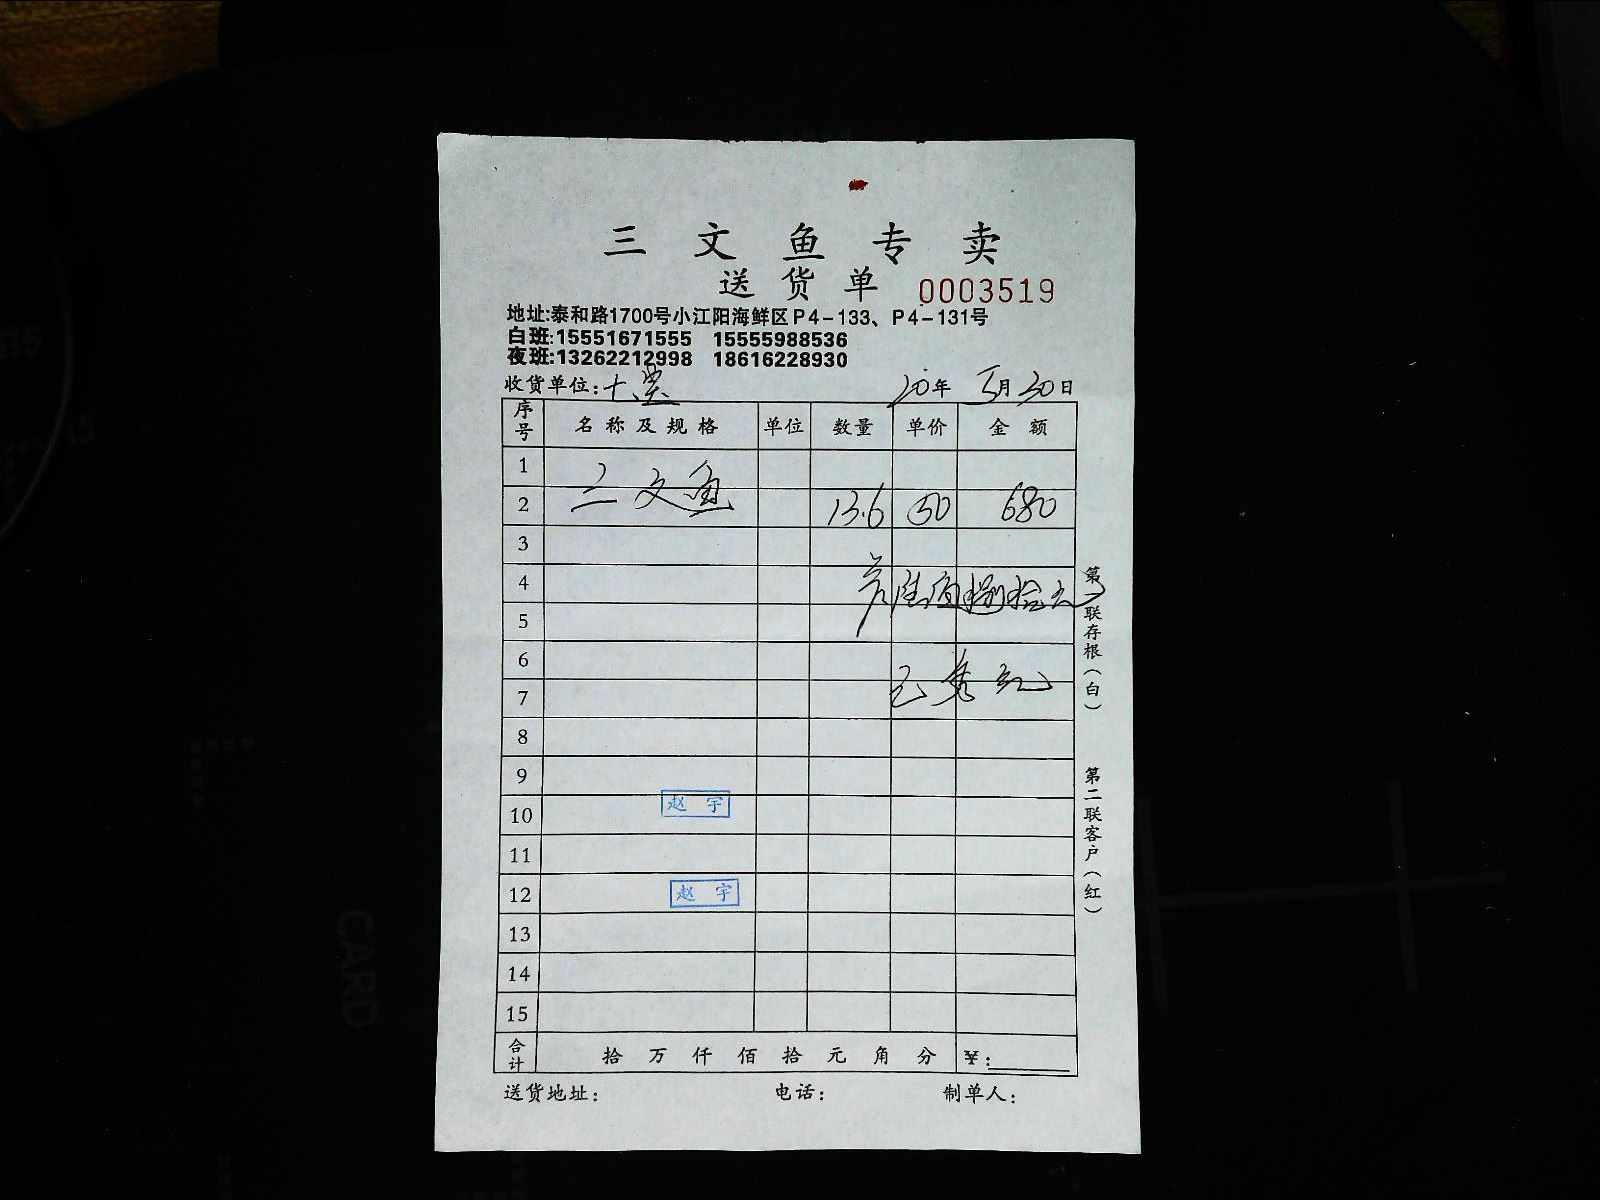 三文鱼专卖
送货单 0003519
地址:泰和路1700号小江阳海鲜区P4-133、P4-131号
白班:15551671555 15555988536
夜班:13262212998 18616228930
收货单位: 20年 5月30日
序号 名称及规格 单位 数量 单价 金额
1
三文鱼
2 13.6 50 680
3
4 陆佰捌拾元
5
6
7
8
9
10 赵宇
11
12 赵宇
13
14
15
合计 拾 万 仟 佰 拾 元 角 分 ¥:
送货地址: 电话: 制单人:
第一联存根(白)
第二联客户(红)